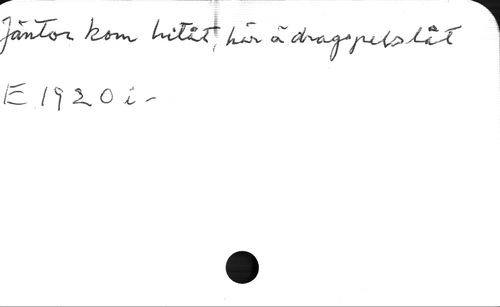 Jäntor kom hitåt, här ä dragspelslåt
E 1920 i -